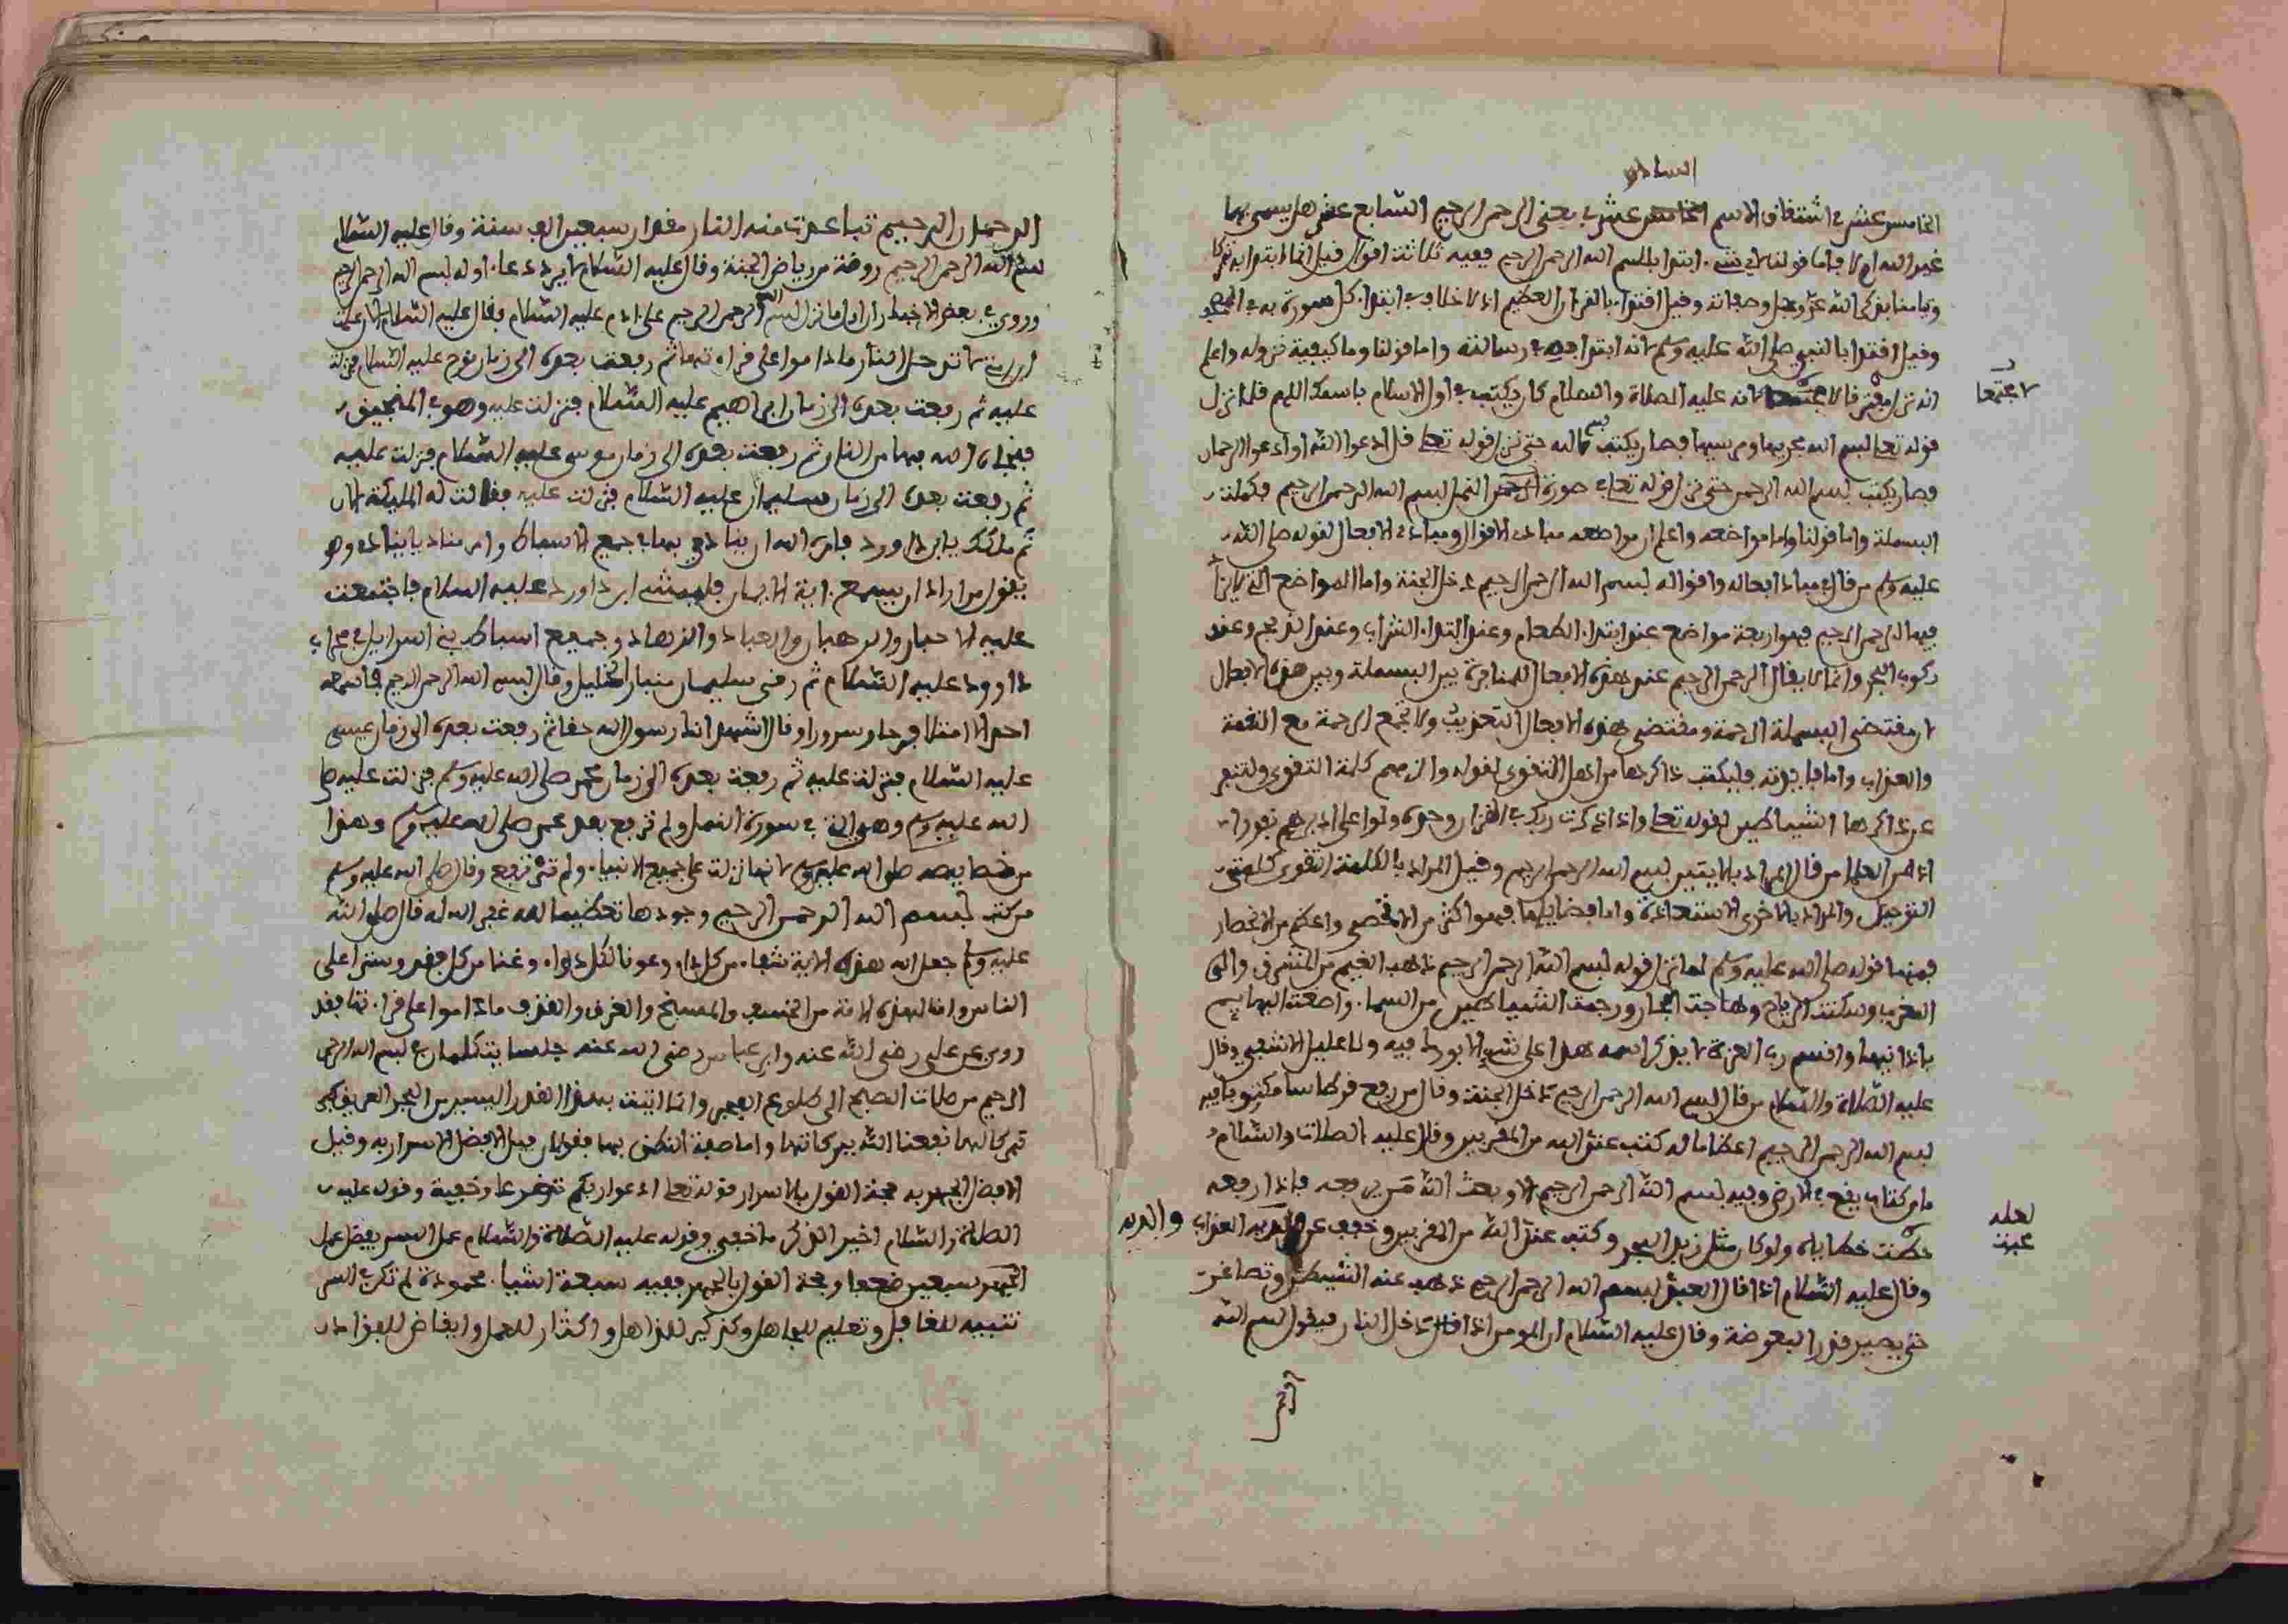 السادس
الخامس عشر في اشتقاق الاسم الخامس عشر في معنى الرحمن الرحيم السابع عشر هل يسمى بها
غير الله ام لا فاما قولنا لاي شيء ابتدا بالبسم الله الرحمن الرحيم ففيه ثلاثة اقوال فيل انما ابتدا به تبركا
وتيامنا بذكر الله عز وجل وصفاته وقيل اقتدا بالقران العظيم اذ لا خلاف في ابتدا كل سورة به في المصحف
وقيل اقتدا بالنبي صلى الله عليه وسلم لانه ابتدا بها في رسائله واما قولنا وما كيفية نزوله واعلم
انه نزل مفترقا لا مجتمعا لانه عليه الصلاة والسلام كان يكتب في اول الاسلام باسمك اللهم فلما نزل
لا مجتمعا
قوله تعلى بسم الله مجريها ومرسيها فصار يكتب بسم الله حتى نزل قوله تعلى قل ادعوا الله او ادعوا الرحمان
فصار يكتب بسم الله الرحمن حتى نزل قوله تعلى في سورة النمل بسم الله الرحمن الرحيم فكملت
البسملة واما قولنا واما مواضعه واعلم ان مواضعه مبادئ الاقوال ومبادئ الافعال لقوله صلى الله
عليه وسلم من قال في مبادئ افعاله واقواله بسم الله الرحمن الرحيم دخل الجنة واما المواضع التي لا يزاد
فيها الرحمن الرحيم فهو اربعة مواضع عند ابتدا الطعام وعند ابتدا الشراب وعند الذبح وعند
ركوب البحر وانما لا يقال الرحمن الرحيم عند هذه الافعال للمنافرة بين البسملة وبين هذه الافعال
لان مقتضى البسملة الرحمة ومقتضى هذه الافعال التعذيب ولا تجمع الرحمة مع النقمة
والعذاب واما فايدته فليكتب ذاكرها من اهل التقوى لقوله والزمهم كلمة التقوى ولتنفر
عن ذاكرها الشياطين لقوله تعلى واذا ذكرت ربك في القران وحده ولوا على ادبرهم نفورا
اذ من العلما من قال المراد بالايتين بسم الله الرحمن الرحيم وقيل المراد بالكلمة التقوى كلمتي
التوحيد والمراد بالاخرى الاستعاذة واما فضايلها فهو اكثر من ان تحصى واعظم من الانحصار
فمنها قوله صلى الله عليه وسلم لما نزل قوله بسم الله الرحمن الرحيم ذهب الغيم من المشرق والى
المغرب وسكنت الرياح وهاجت البحار ورجمت الشياطين من السما واصغت البهايم
باذانها واقسم رب العزة لا يذكر اسمه هذا على شيء الا بورك فيه ولا عليل الا شفي وقال
عليه الصلاة والسلام من قال بسم الله الرحمن الرحيم دخل الجنة وقال من رفع قرطاسا مكتوبا فيه
بسم الله الرحمن الرحيم اعظاما له كتب عند الله من المقربين وقال عليه الصلاة والسلام
ما من كتاب يقع في الارض وفيه بسم الله الرحمن الرحيم الا وبعث الله من يرفعه فاذا رفعه
حطت خطاياه ولو كان مثل زبد البحر وكتب عند الله من المقربين وخفف عن والديه العذاب
لعله
وقال عليه السلام اذا قال العبد بسم الله الرحمن الرحيم ذهب عنه الشيطن وتصاغر
حتى يصير قدر البعوضة وقال عليه السلام ان المومن اذا دخل النار فيقول بسم الله
الرحمن الرحيم تباعدت منه النار مقدار سبعين الف سنة وقال عليه السلام
بسم الله الرحمن الرحيم روضة من رياض الجنة وقال عليه السلام لا يرد دعا اوله بسم الله الرحمن الرحيم
وروي في بعض الاخبار ان اول ما نزل بسم الله الرحمن الرحيم على ادم عليه السلام فقال عليه السلام الان علمت
ان ذريتي لا تدخل النار ما داموا على قراءتها ثم رفعت بعده الى زمان نوح عليه السلام فنزلت
عليه ثم رفعت بعده الى زمان ابراهيم عليه السلام فنزلت عليه وهو في المنجنيق
فنجاه الله بها من النار ثم رفعت بعده الى زمان موسى عليه السلام فنزلت عليه
ثم رفعت بعده الى زمان سليمان عليه السلام فنزلت عليه فقالت له المليكة الان
تم ملكك يا بن داوود فامره الله ان ينادي بها في جميع الاسباط وامر مناديا ينادي وهو
يقول من اراد ان يسمع اية الايمان فليمش لابن داوود عليه السلام فاجتمعت
عليه الاحبار والرهبان والعباد والزهاد وجميع اسباط بني اسرايل في محراب
داوود عليه السلام ثم رقى سليمان منبر الخليل وقال بسم الله الرحمن الرحيم فما سمعه
احد الا امتلا فرحا وسرورا وقال اشهد انك رسول الله حقا ثم رفعت بعده الى زمان عيسى
عليه السلام فنزلت عليه ثم رفعت بعده الى زمان محمد صلى الله عليه وسلم فنزلت عليه صلى
الله عليه وسلم وهو الان في سورة النمل ولم ترفع بعد محمد صلى الله عليه وسلم وهذا
من خصايصه صلى الله عليه وسلم لانها نزلت على جميع الانبيا ولم ترفع وقال صلى الله عليه وسلم
من كتب بسم الله الرحمن الرحيم وجودها تعظيما لله غفر الله له قال صلى الله
عليه وسلم جعل الله هذه الاية شفا من كل دا وعونا لكل دوا وغنا من كل فقر وسترا على
الناس وامانا لهذه الامة من الخسف والمسخ والغرق والقذف ما داموا على قراءتها فقد
روي عن علي رضي الله عنه وابن عباس رضي الله عنه جلسا يتكلمان في بسم الله الرحمن
الرحيم من صلات الصبح الى طلوع الفجر وانما اتيت بهذا القدر اليسير من البحر العريض كي
تبركا لها نفعنا الله ببركاتها واما صفة النطق بها فقولان قيل الافضل الاسرار به وقيل
الافضل الجهر به حجة القول بالاسرار قوله تعلى ادعوا ربكم تضرعا وخفية وقوله عليه
الصلاة والسلام اخير الذكر ما خفي وقوله عليه الصلاة والسلام عمل السر يفضل عمل
الجهر سبعين ضعفا وحجة القول بالجهر ففيه سبعة اشيا محمودة لم تكن في السر
تنبيه للغافل وتعليم للجاهل وتذكير للذاهل واكثار للعمل وايقاض للفؤاد